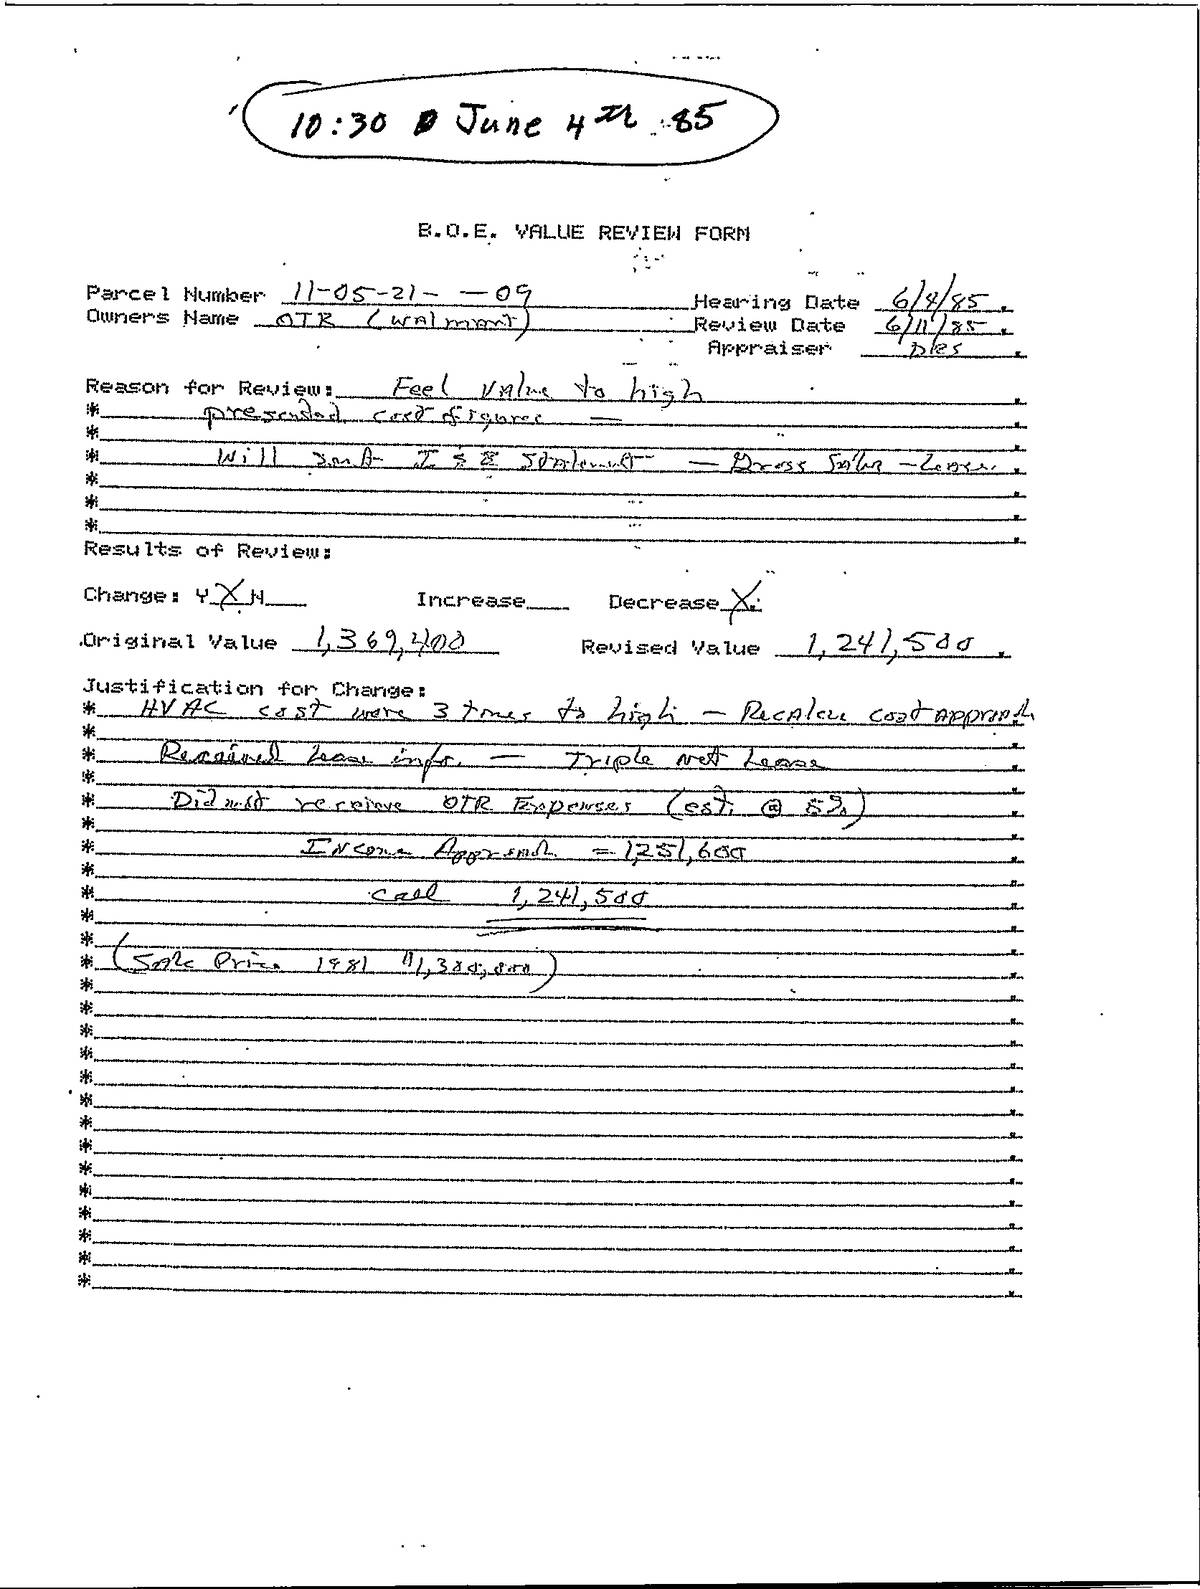 10:30 June 4th 85
B.O.E. VALUE REVIEW FORM
Parcel Number 11-05-21- -09 Hearing Date 6/4/85.
Owners Name OTR (Walmart) Review Date 6/11/85.
Appraiser
Reason for Review: Feel Value to high
* presented cost figures —
*
* Will sent I & E Statement — Gross Sales - Lease.
*
*
*
Results of Review:
Change: Y X N Increase Decrease X.
Original Value 1,369,400 Revised Value 1,241,500.
Justification for Change:
* HVAC cost were 3 times to high — Recalcu cost approach
*
* Received Lease info. — Triple Net Lease
*
* Did not receieve OTR Expenses (est. @ 5%)
*
* Income Approach = 1,251,600
*
* Call 1,241,500
*
*
* (Sale Price 1981 $1,380,000)
*
*
*
*
*
*
*
*
*
*
*
*
*
*